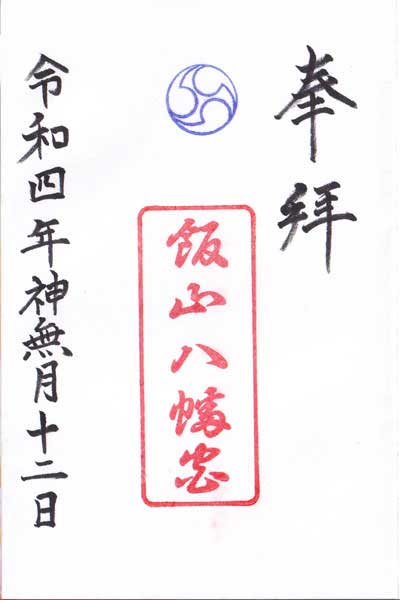 奉拝
飯山八幡宮
令和四年神無月十二日